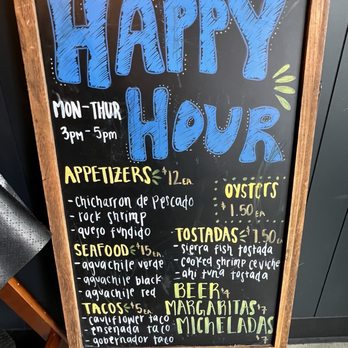 HAPPY
HOUR
MON-THUR
3pm-5pm
APPETIZERS $12 EA.
- chicharron de pescado
- rock shrimp
- queso fundido
SEAFOOD $15 EA.
- aguachile verde
- aguachile black
- aguachile red
TACOS $5 EA
- cauliflower taco
- ensenada taco
- gobernador taco
OYSTERS
$1.50 EA
TOSTADAS $7.50 EA.
- sierra fish tostada
- cooked shrimp ceviche
- ahi tuna tostada
BEER $4
MARGARITAS $7
MICHELADAS $7